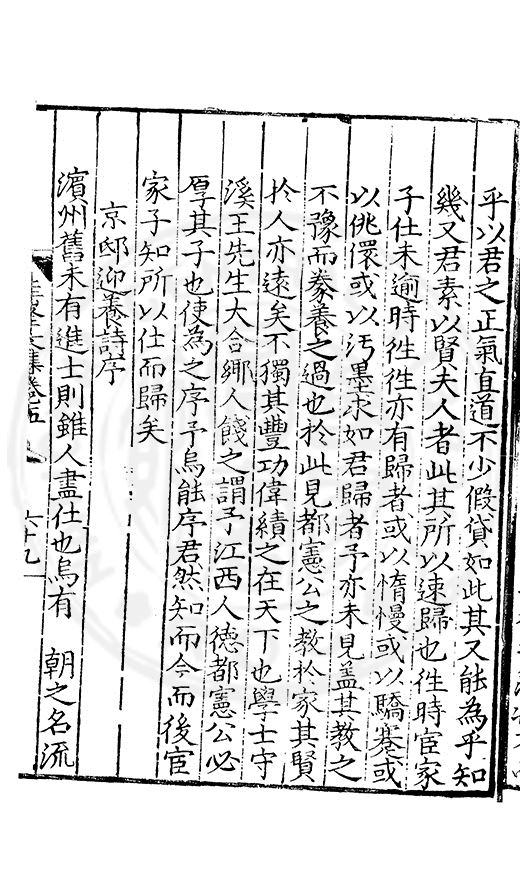 乎以君之正氣直道不少假貸如此其又能為乎知
幾又君素以賢夫人者此其所以速歸也徃時宦家
子仕未逾時徃徃亦有歸者或以惰慢或以驕蹇或
以佻儇或以汚墨求如君歸者予亦未見盖其教之
不豫而豢養之過也於此見都憲公之教於家其賢
於人亦遠矣不獨其豐功偉績之在天下也學士守
溪王先生大合鄉人餞之謂予江西人德都憲公必
厚其子也使為之序予烏能序君然知而今而後宦
家子知所以仕而歸矣
京邸迎養詩序
濵州舊未有進士則雖人盡仕也烏有　朝之名流
集卷五
六十九